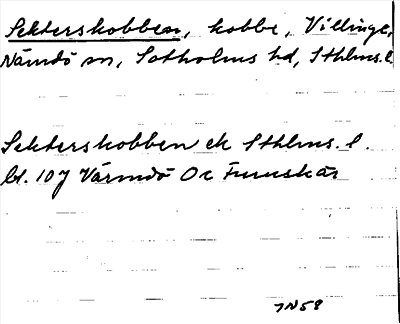 Sekterskobben, kobbe, Villinge,
Nämdö sn, Sotholms hd, Sthlms. l.
Sekterskobben ek Sthlms. l.
bl. 107 Värmdö Oc Furuskär
7N58